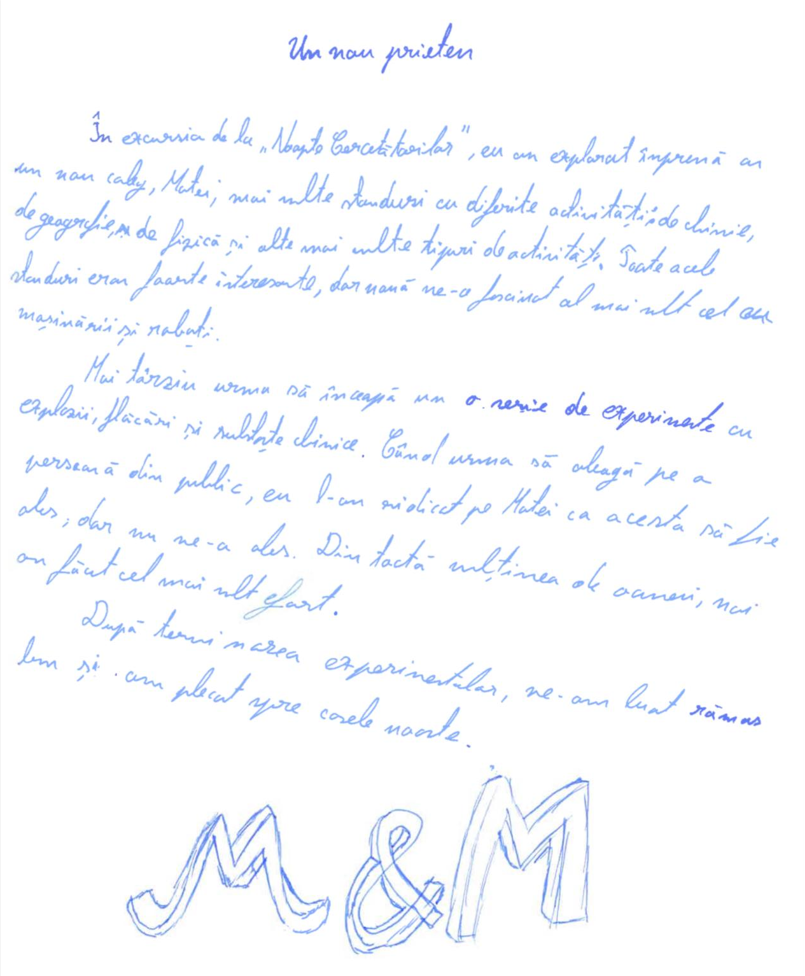 Un nou prieten
În excursia de la „Noapte Cercetătorilor”, eu am explorat împreună cu
un nou coleg, Matei, mai multe standuri cu diferite activități: de chimie,
de geografie, de fizică și alte mai multe tipuri de activități. Toate acele
standuri erau foarte interesante, dar nouă ne-a fascinat al mai mult cel cu
mașinării și roboți.
Mai târziu urma să înceapă un o serie de experimente cu
explozii, flăcări și substanțe chimice. Când urma să aleagă pe o
persoană din public, eu l-am ridicat pe Matei ca acesta să fie
ales, dar nu ne-a ales. Din toată mulțimea de oameni, noi
am făcut cel mai mult efort.
După terminarea experimentelor, ne-am luat rămas
bun și am plecat spre casele noastre.
M & M